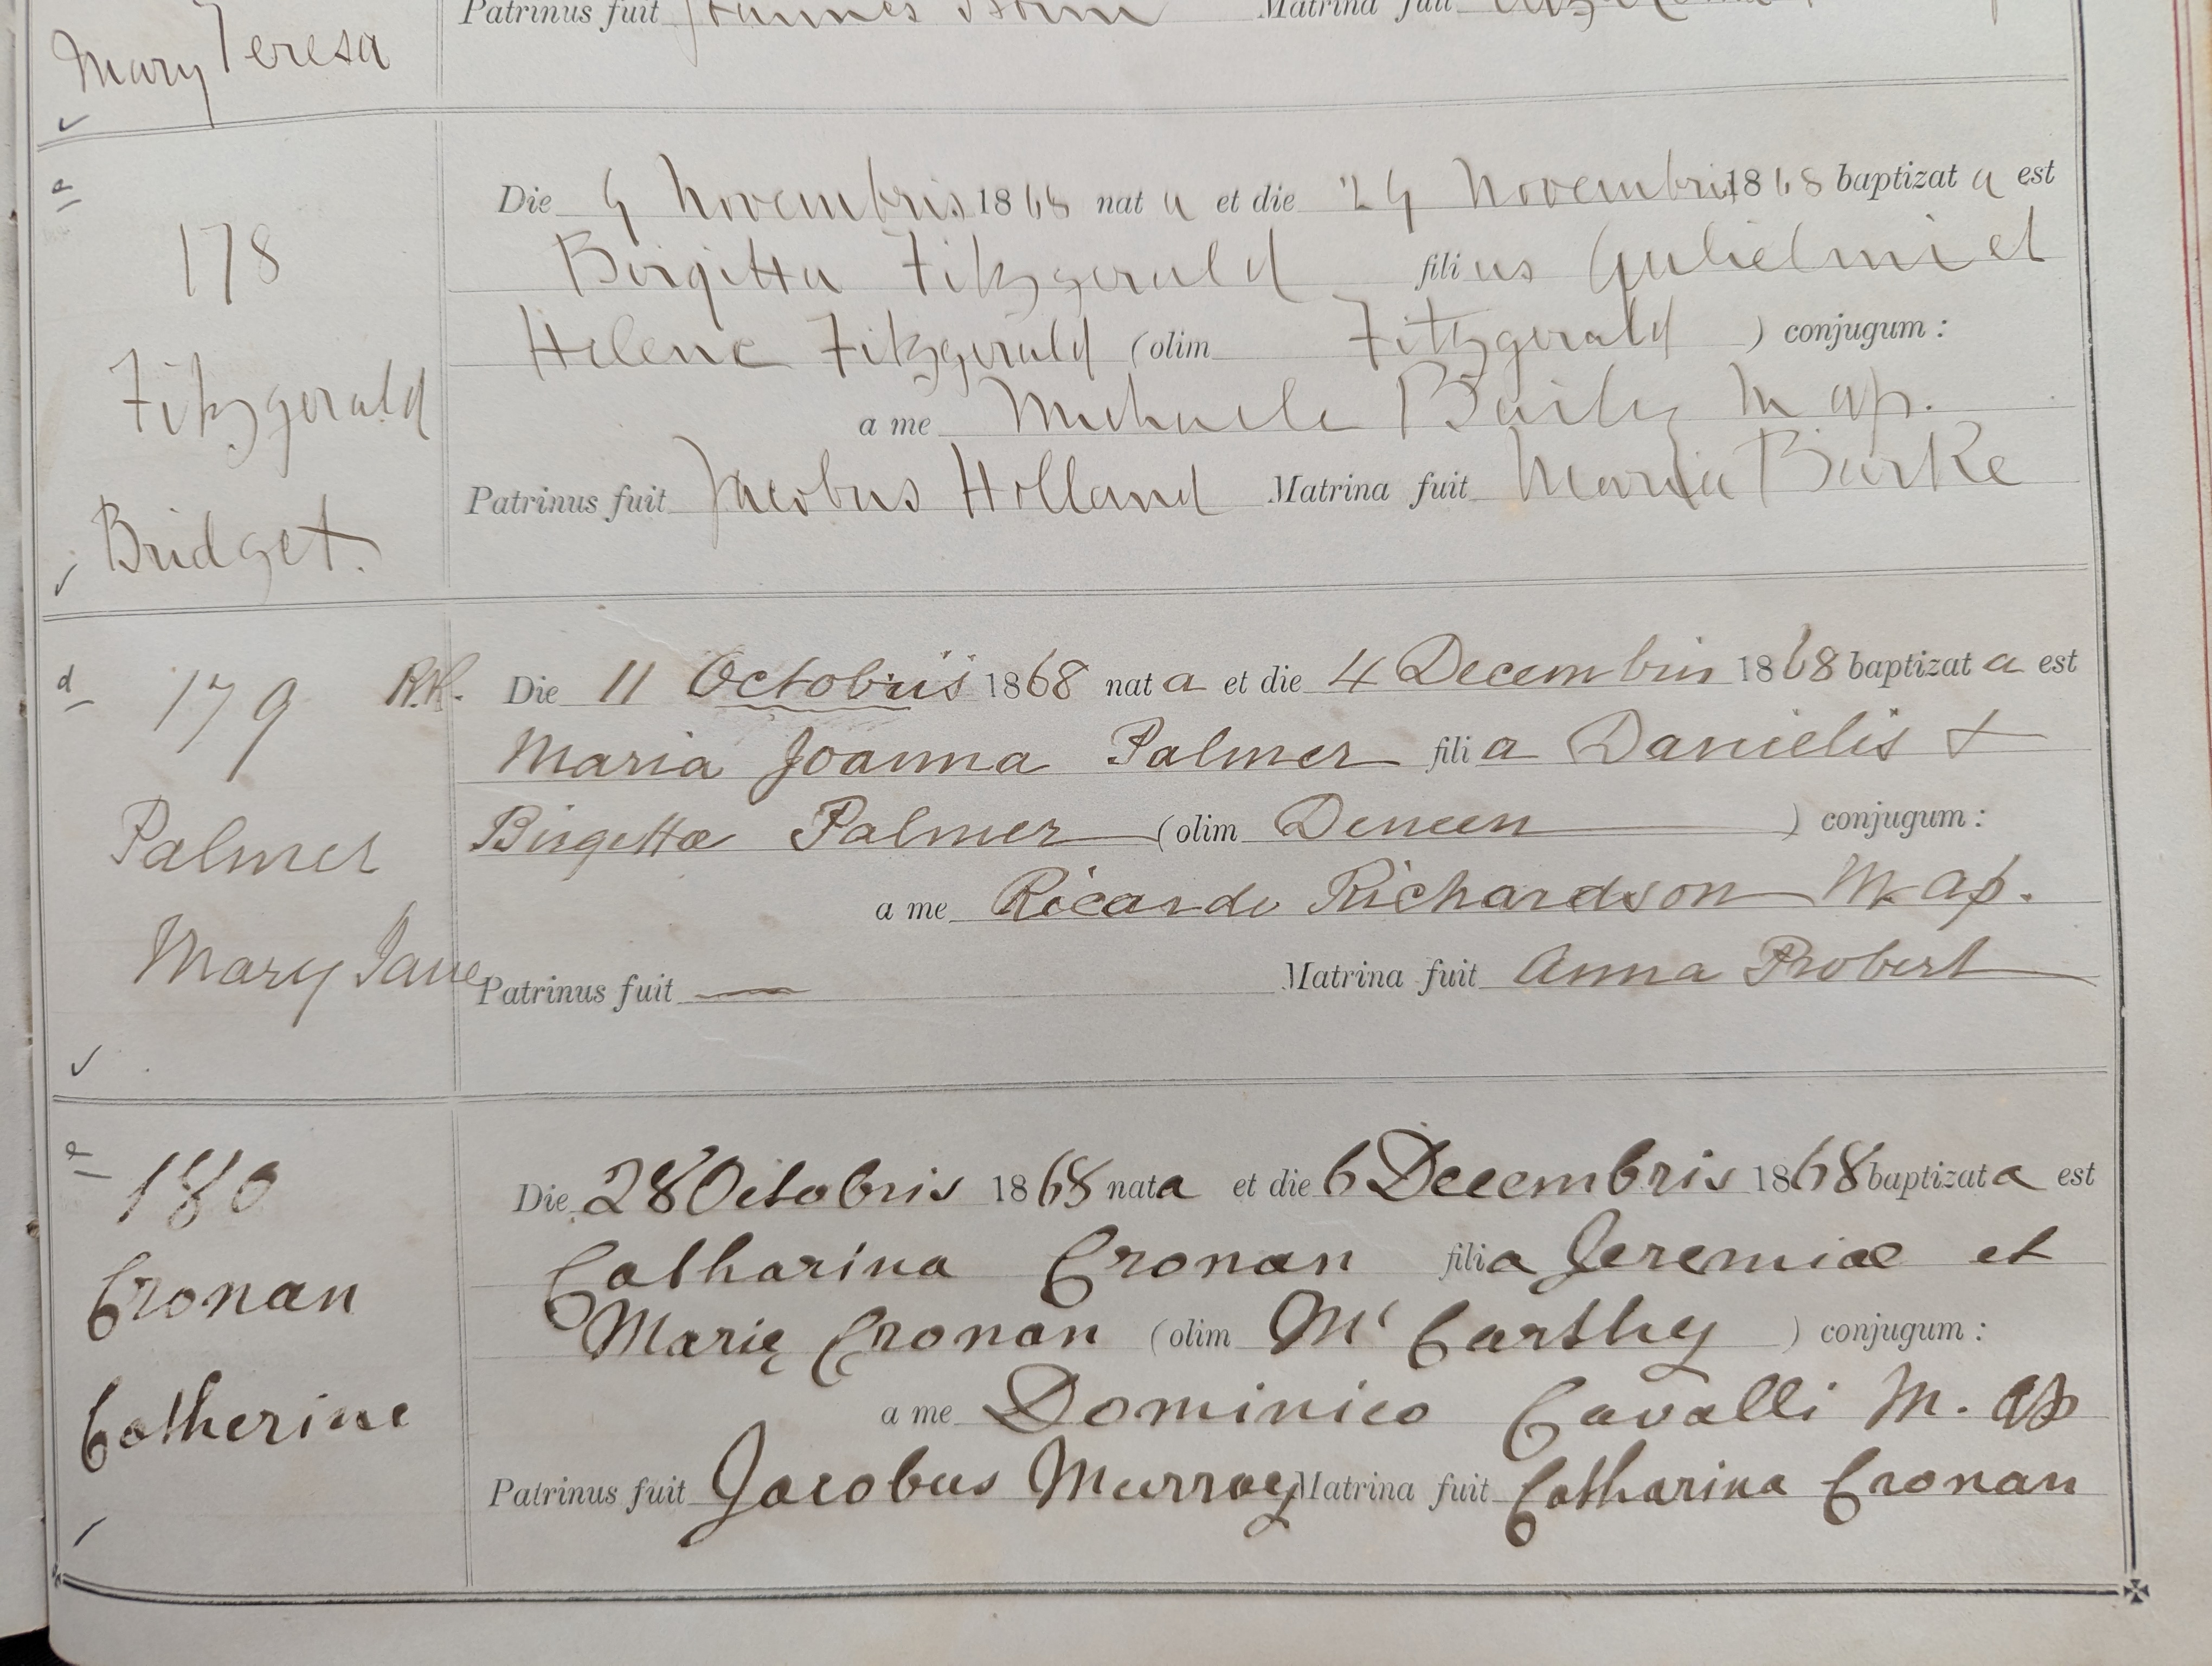 Patrinus fuit Joannes Matrina fuit
Mary Teresa
178
Fitzgerald
Bridget.
Die 9 Novembris 1868 nat a et die 29 Novembris 1868 baptizat a est
Birgitta Fitzgerald filius Gulielmi et
Helenæ Fitzgerald (olim Fitzgerald ) conjugum :
a me Michaele Baily M ap.
Patrinus fuit Jacobus Holland Matrina fuit Maria Burke
179 R.R.
Palmer
Mary Jane
Die 11 Octobris 1868 nat a et die 4 Decembris 1868 baptizat a est
Maria Joanna Palmer filia Danielis +
Birgettæ Palmer (olim Deneen ) conjugum :
a me Ricardo Richardson M. ap.
Patrinus fuit — Matrina fuit Anna Probert
180
Cronan
Catherine
Die 28 Octobris 1868 nata et die 6 Decembris 1868 baptizat a est
Catharina Cronan filia Jeremiæ et
Marię Cronan (olim Mc Carthy ) conjugum :
a me Dominico Cavalli M. ap
Patrinus fuit Jacobus Murray Matrina fuit Catharina Cronan